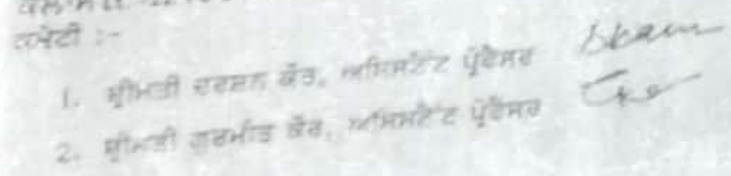 ਕਮੇਟੀ :-
1. ਸ਼੍ਰੀਮਤੀ ਦਰਸ਼ਨ ਕੌਰ, ਅਸਿਸਟੈਂਟ ਪ੍ਰੋਫੈਸਰ
2. ਸ਼੍ਰੀਮਤੀ ਗੁਰਮੀਤ ਕੌਰ, ਅਸਿਸਟੈਂਟ ਪ੍ਰੋਫੈਸਰ